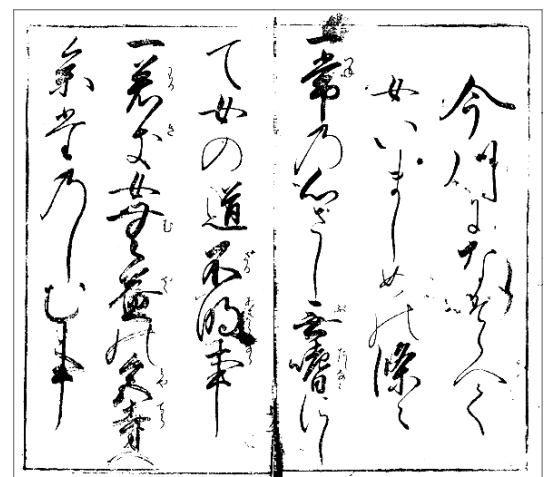 今川になぞらへて
女いましめの條々
一常の心ざし無嗜にし
て女の道不明事
一若き女無益の宮寺へ
参たのしむ事